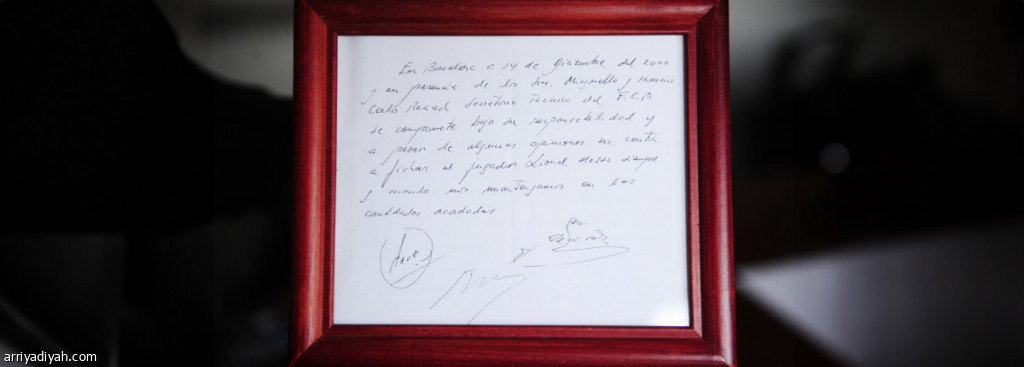 En Barcelona a 14 de Diciembre del 2000
y en presencia de los Sres. Minguella y Horacio
Carlos Rexach Secretario Técnico del F.C.B
se compromete bajo su responsabilidad y
a pesar de algunas opiniones en contra
a fichar al jugador Lionel Messi siempre
y cuando nos mantengamos en las
cantidades acordadas
arriyadiyah.com